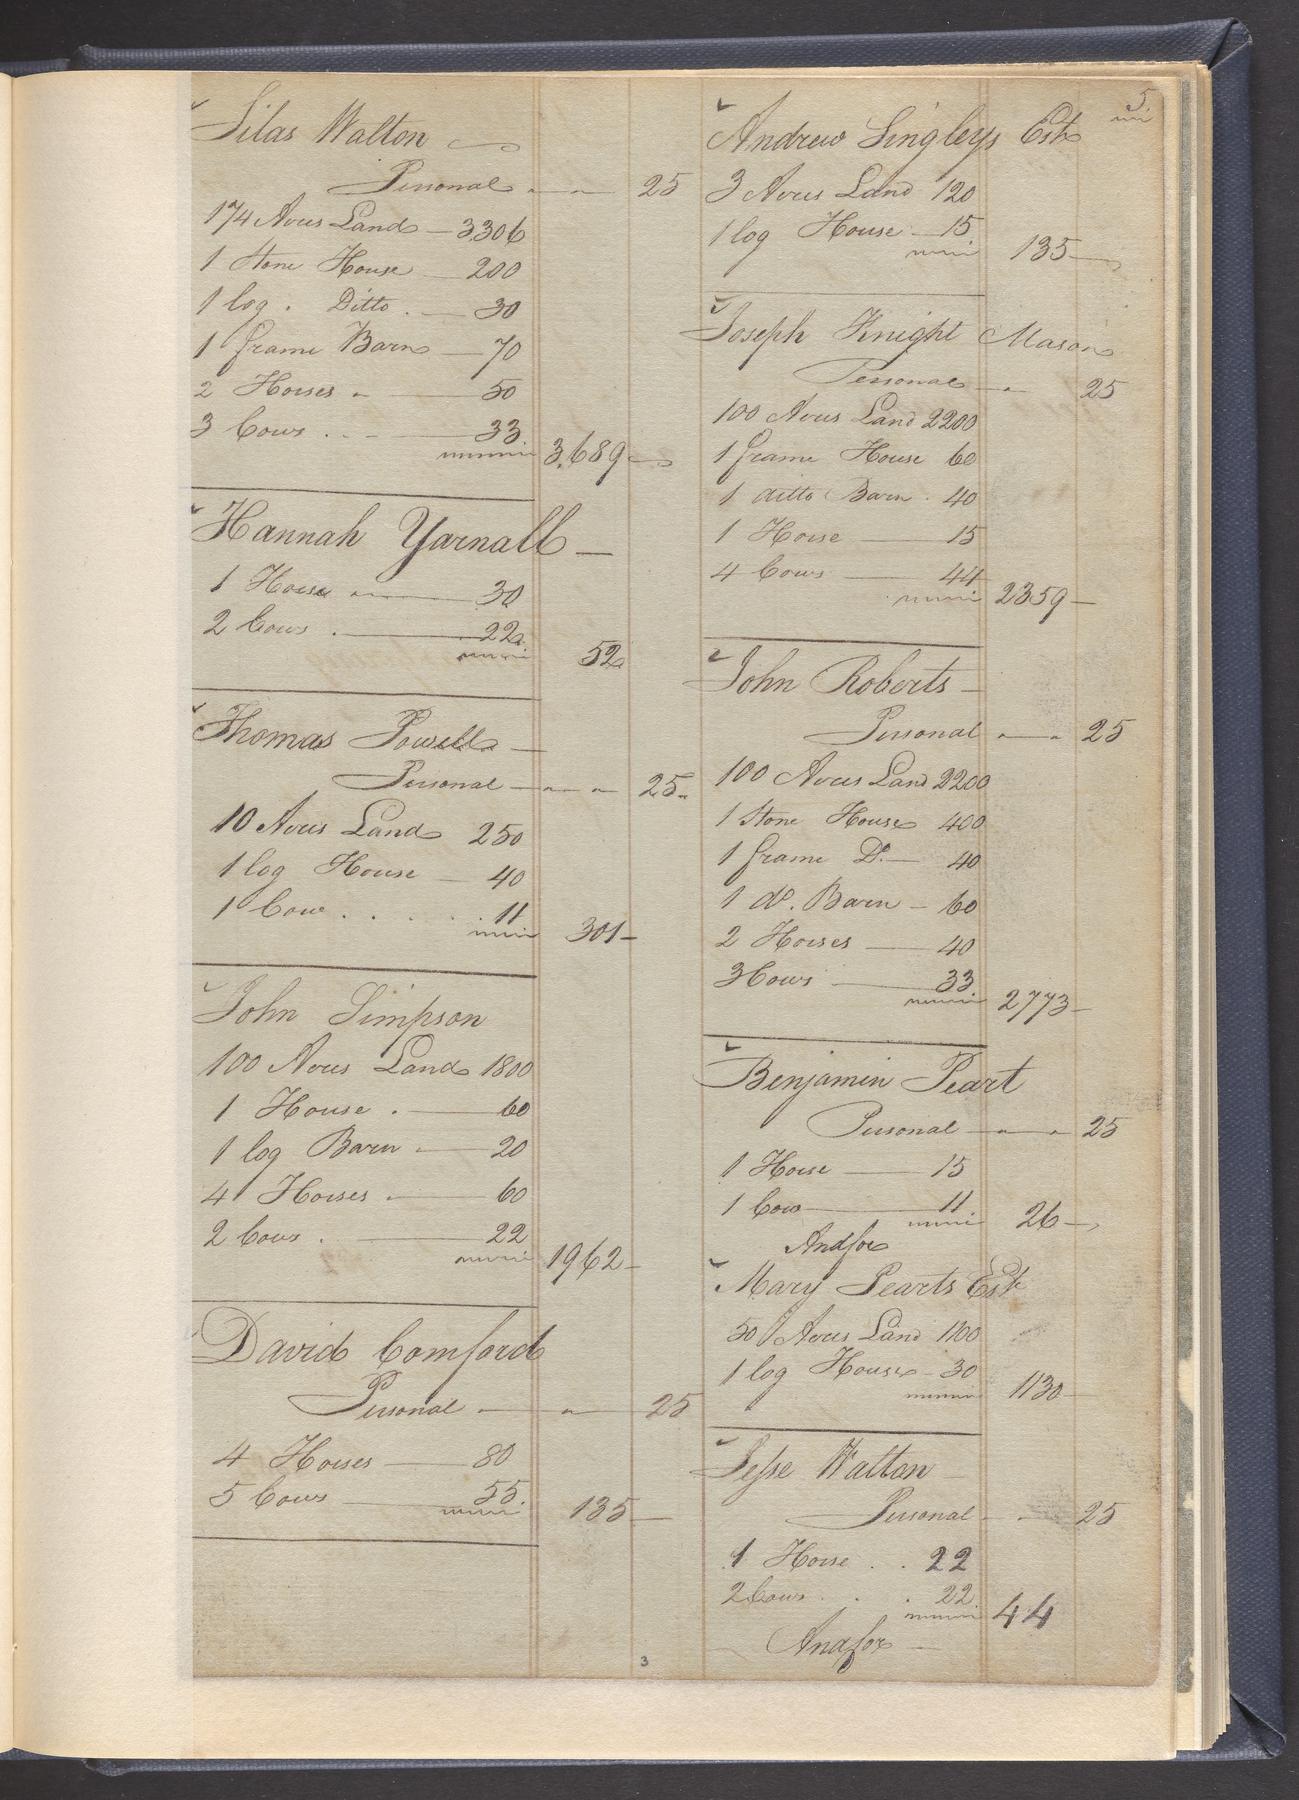 Silas Walton
Personal 25
174 Acres Land 3306
1 Stone House 200
1 log Ditto 30
1 frame Barn 70
2 Horses 50
3 Cows 33
3,689
Hannah Yarnall
1 Horse 30
2 Cows 22
52
Thomas Powell
Personal 25
10 Acres Land 250
1 log House 40
1 Cow 11
301
John Simpson
100 Acres Land 1800
1 House 60
1 log Barn 20
4 Horses 60
2 Cows 22
1962
David Comford
Personal 25
4 Horses 80
5 Cows 55
135
3
5
Andrew Singleys Est
3 Acres Land 120
1 log House 15
135
Joseph Knight Mason
Personal 25
100 Acres Land 2200
1 frame House 60
1 ditto Barn 40
1 Horse 15
4 Cows 44
2359
John Roberts
Personal 25
100 Acres Land 2200
1 Stone House 400
1 frame Do. 40
1 do. Barn 60
2 Horses 40
3 Cows 33
2773
Benjamin Peart
Personal 25
1 Horse 15
1 Cow 11
26
And for
Mary Pearts Est
50 Acres Land 1100
1 log House 30
1130
Jesse Walton
Personal 25
1 Horse 22
2 Cows 22
44
And for